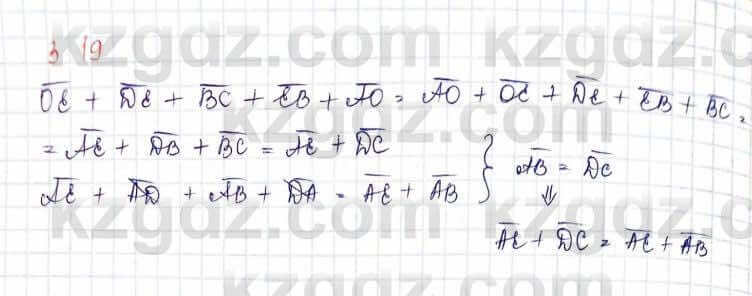 3 19
$\overline{OE} + \overline{DE} + \overline{BC} + \overline{EB} + \overline{AO} = \overline{AO} + \overline{OE} + \overline{DE} + \overline{EB} + \overline{BC} =$
$= \overline{AE} + \overline{DB} + \overline{BC} = \overline{AE} + \overline{DC}$
$\overline{AE} + \overline{AD} + \overline{AB} + \overline{DA} = \overline{AE} + \overline{AB}$ } $\overline{AB} = \overline{DC}$
⇓
$\overline{AE} + \overline{DC} = \overline{AE} + \overline{AB}$
kzgdz.com kzgdz.com
kzgdz.com kzgdz.com
kzgdz.com kzgdz.com